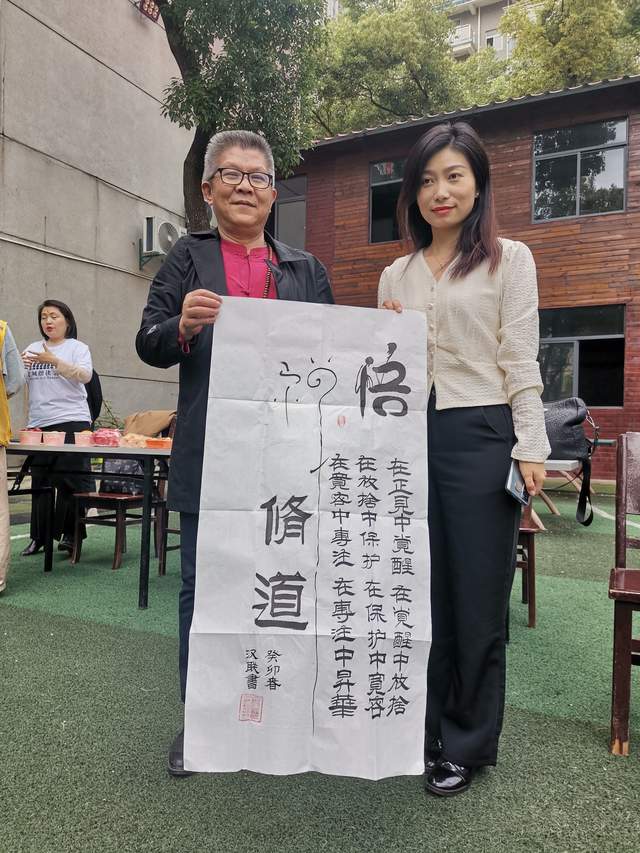 悟
在正見中覚醒 在覚醒中放捨
在放捨中保护 在保护中寬容
在寬容中專注 在專注中昇華
禅
脩道
癸卯春
書